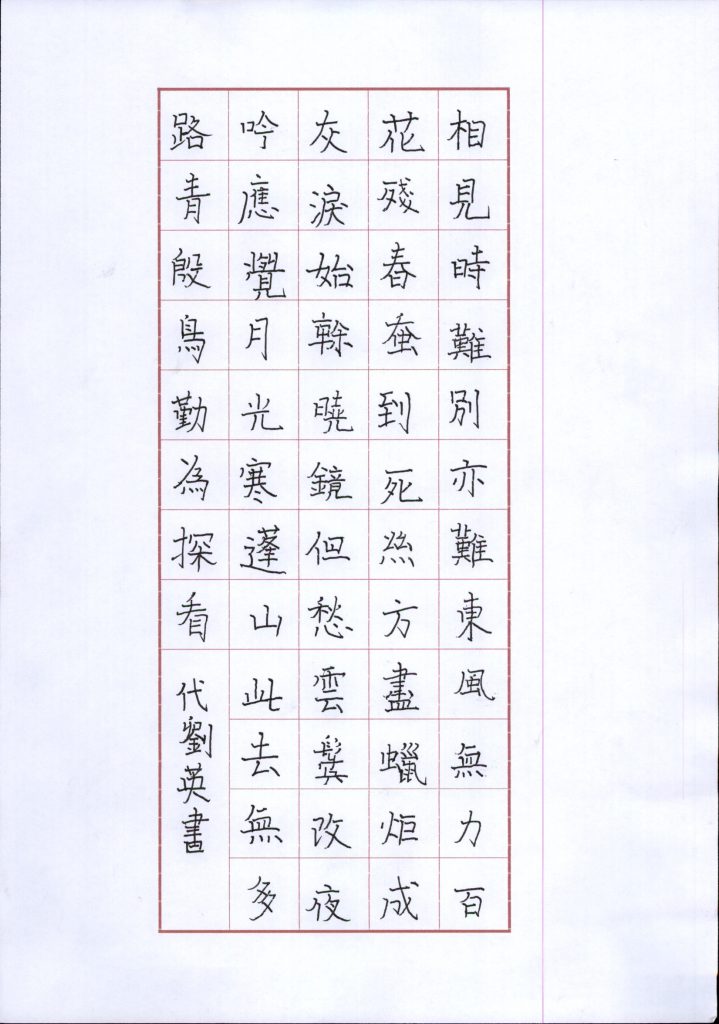 相見時難別亦難東風無力百
花殘春蚕到死絲方盡蠟炬成
灰淚始乾曉鏡但愁雲鬢改夜
吟應覺月光寒蓬山此去無多
路青殷鳥勤為探看
代劉英書